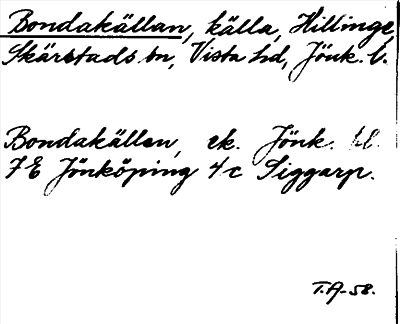 Bondakällan, källa, Hillinge,
Skärstads sn, Vista hd, Jönk. l.
Bondakällan, ek. Jönk. bl.
7E Jönköping 4/c Siggarp.
T.A-58.